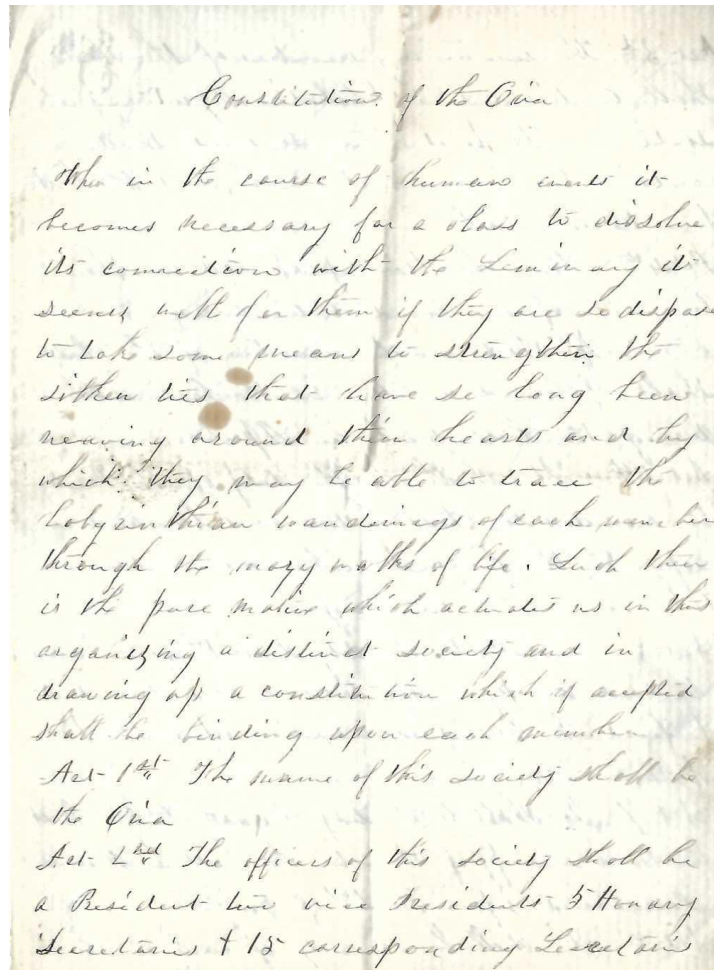 Constitution of the Ova
When in the course of human events it
becomes necessary for a class to dissolve
its connection with the Seminary it
seems well for them if they are so dispose
to take some means to strengthen the
silken ties that have so long been
weaving around their hearts and by
which they may be able to trace the
labyrinthian wanderings of each member
through the mazy walks of life. Such then
is the pure motive which actuates us in thus
organizing a distinct society and in
drawing up a constitution which if accepted
shall be binding upon each member
Art 1st The name of this society shall be
the Ova
Art 2nd The officers of this society shall be
a President two vice Presidents 5 Honary
Secretaries + 15 corresponding Secretaries